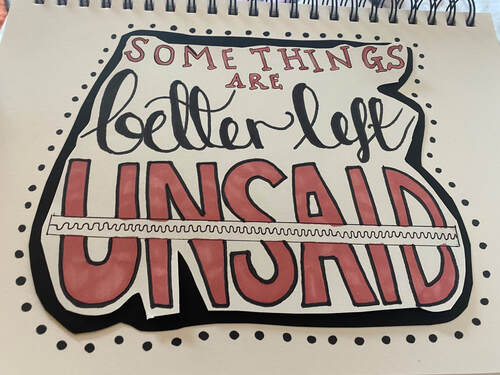 SOME THINGS
ARE
better left
UNSAID